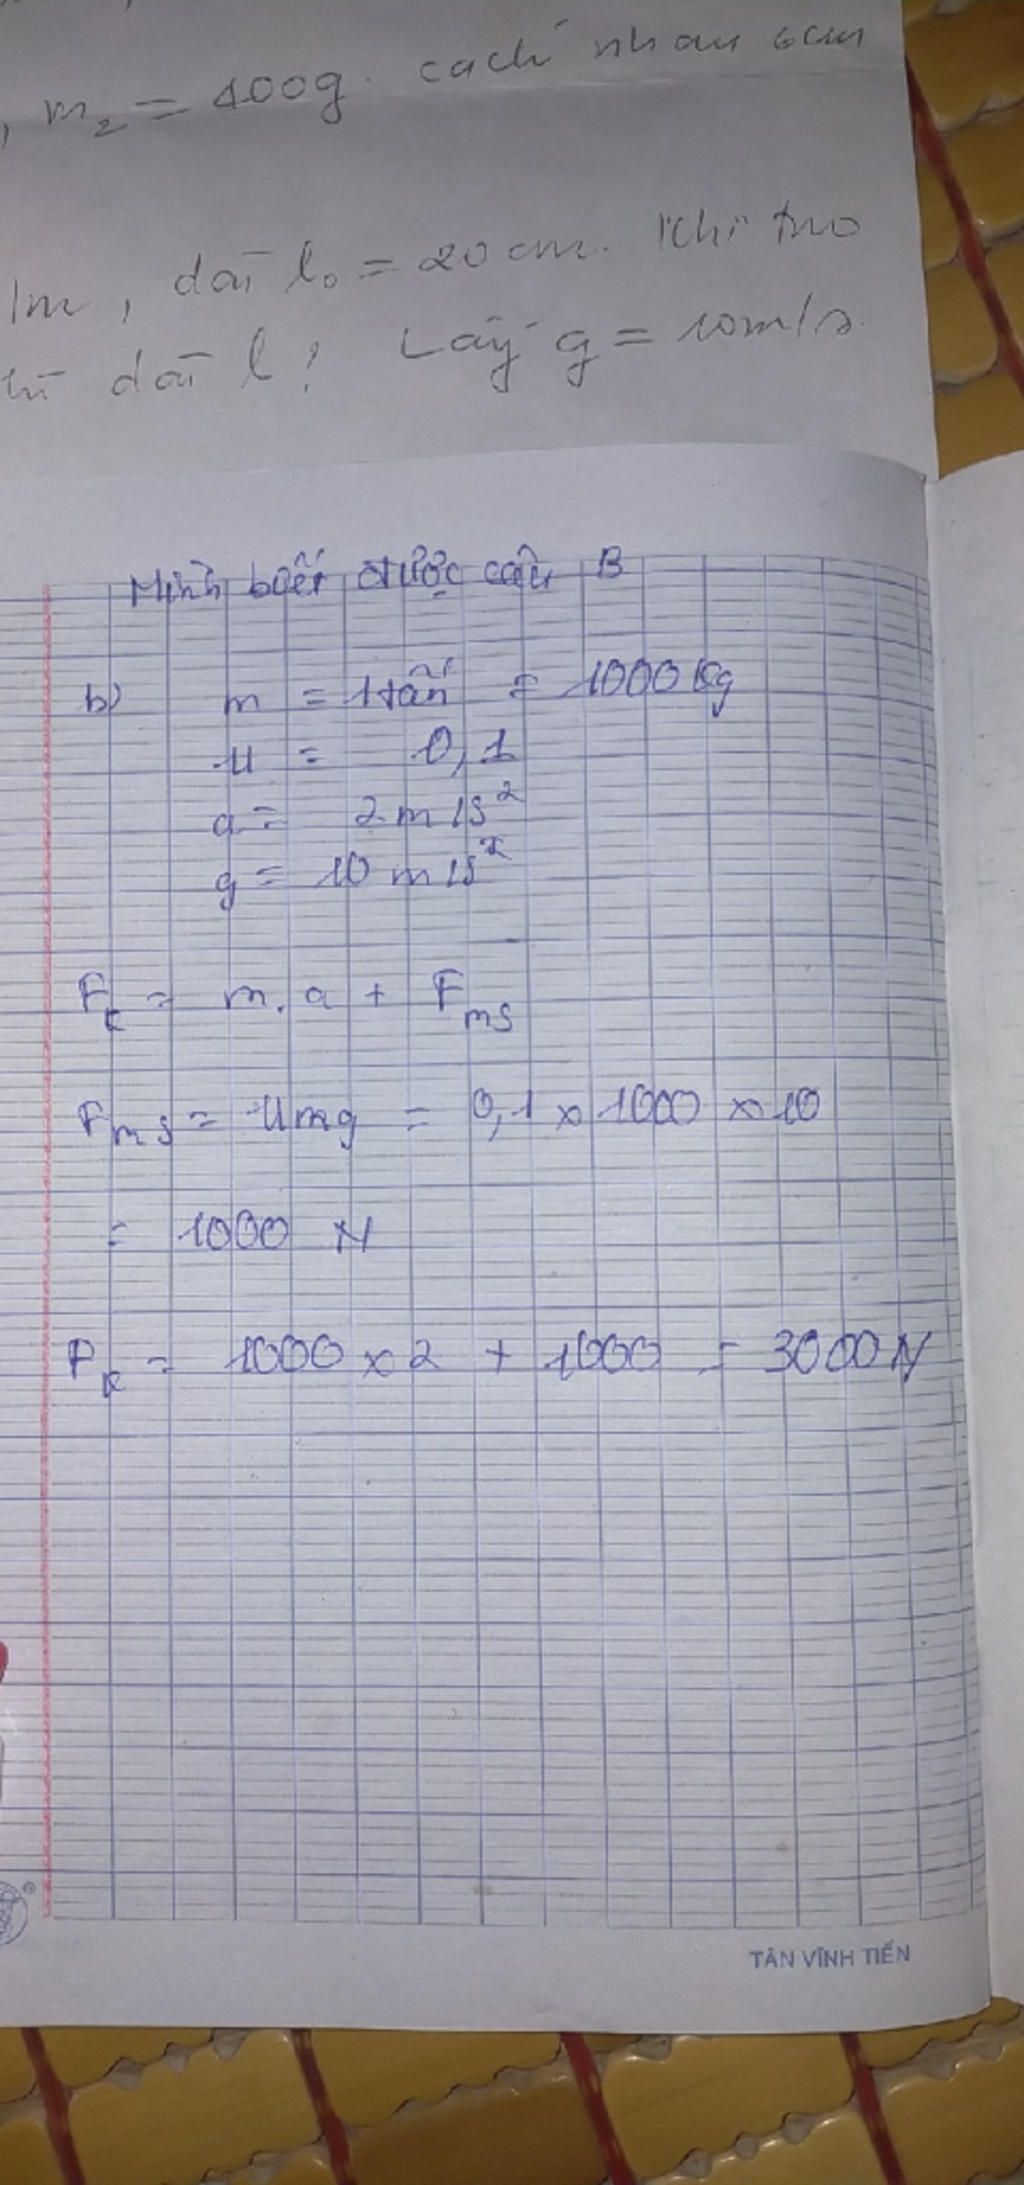 , m₂ = 400g. cách nhau 6cm
1m, dài l₀ = 20 cm. Khi treo
thì dài l? Lấy g = 10m/s.
Mình biết được câu B
b) m = 1 tấn = 1000 kg
u = 0,1
a = 2 m/s²
g = 10 m/s²
Fₖ = m. a + Fms
Fms = umg = 0,1 x 1000 x 10
= 1000 N
Fₖ = 1000 x 2 + 1000 = 3000 N
TÂN VĨNH TIẾN